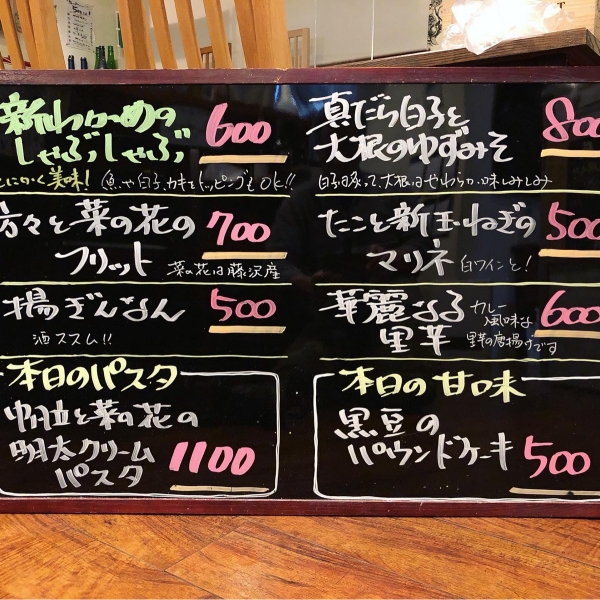 新わかめの
しゃぶしゃぶ 600
とにかく美味! 魚や白子、カキをトッピングもOK!!
方々と菜の花の 700
フリット 菜の花は藤沢産
揚ぎんなん 500
酒ススム!!
本日のパスタ
帆立と菜の花の
明太クリーム
パスタ 1100
真だら白子と
大根のゆずみそ 800
白子は炙って、大根はやわらか、味しみしみ
たこと新玉ねぎの 500
マリネ 白ワインと!
華麗なる
里芋 600
カレー
風味な
里芋の唐揚げです
本日の甘味
黒豆の
パウンドケーキ 500